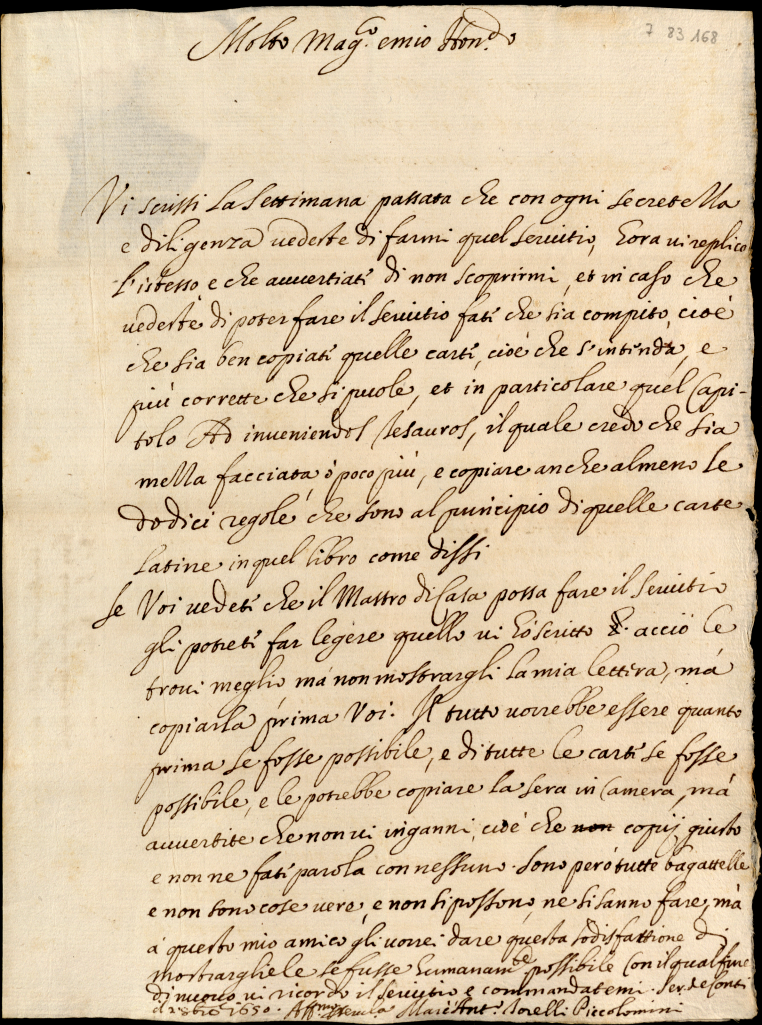 7 83 168
Molto Mag.co e mio Hon.do
Vi scrissi la settimana passata che con ogni secretella
e diligenza vedeste di farmi quel servitio, hora vi replico
l'istesso e che avvertiati di non scoprirmi, et in caso che
vedeste di poter fare il servitio fati che sia compito, cioè
che sia ben copiati quelle carti, cioè che s'intenda, e
più corrette che si puole, et in particolare quel Capi-
tolo Ad inveniendos Tesauros, il quale credo che sia
mella facciata, ò poco più, e copiare anche almeno le
dodici regole che sono al principio di quelle carte
latine in quel libro come dissi
Se Voi vedeti che il Mastro di Casa possa fare il servitio
gli poteti far legere quello vi hò scritto acciò le
trovi meglio, mà non mostrargli la mia lettera, mà
copiarla prima Voi. Il tutto vorrebbe essere quanto
prima se fosse possibile, e di tutte le carti se fosse
possibile, e le potrebbe copiare la sera in Camera, mà
avvertite che non vi inganni, cioè che non copij giusto
e non ne fati parola con nessuno. Sono però tutte bagattelle
e non sono cose vere, e non si possono, ne si sanno fare, mà
à questo mio amico gli vorrei dare questa sodisfattione di
mostrargliele se fusse humanam.te possibile Con il qual fine
di nuovo vi ricordo il servitio e commandatemi. Ser. de Conti
1650. Aff.mo Marc'Ant.o Borelli Piccolomini